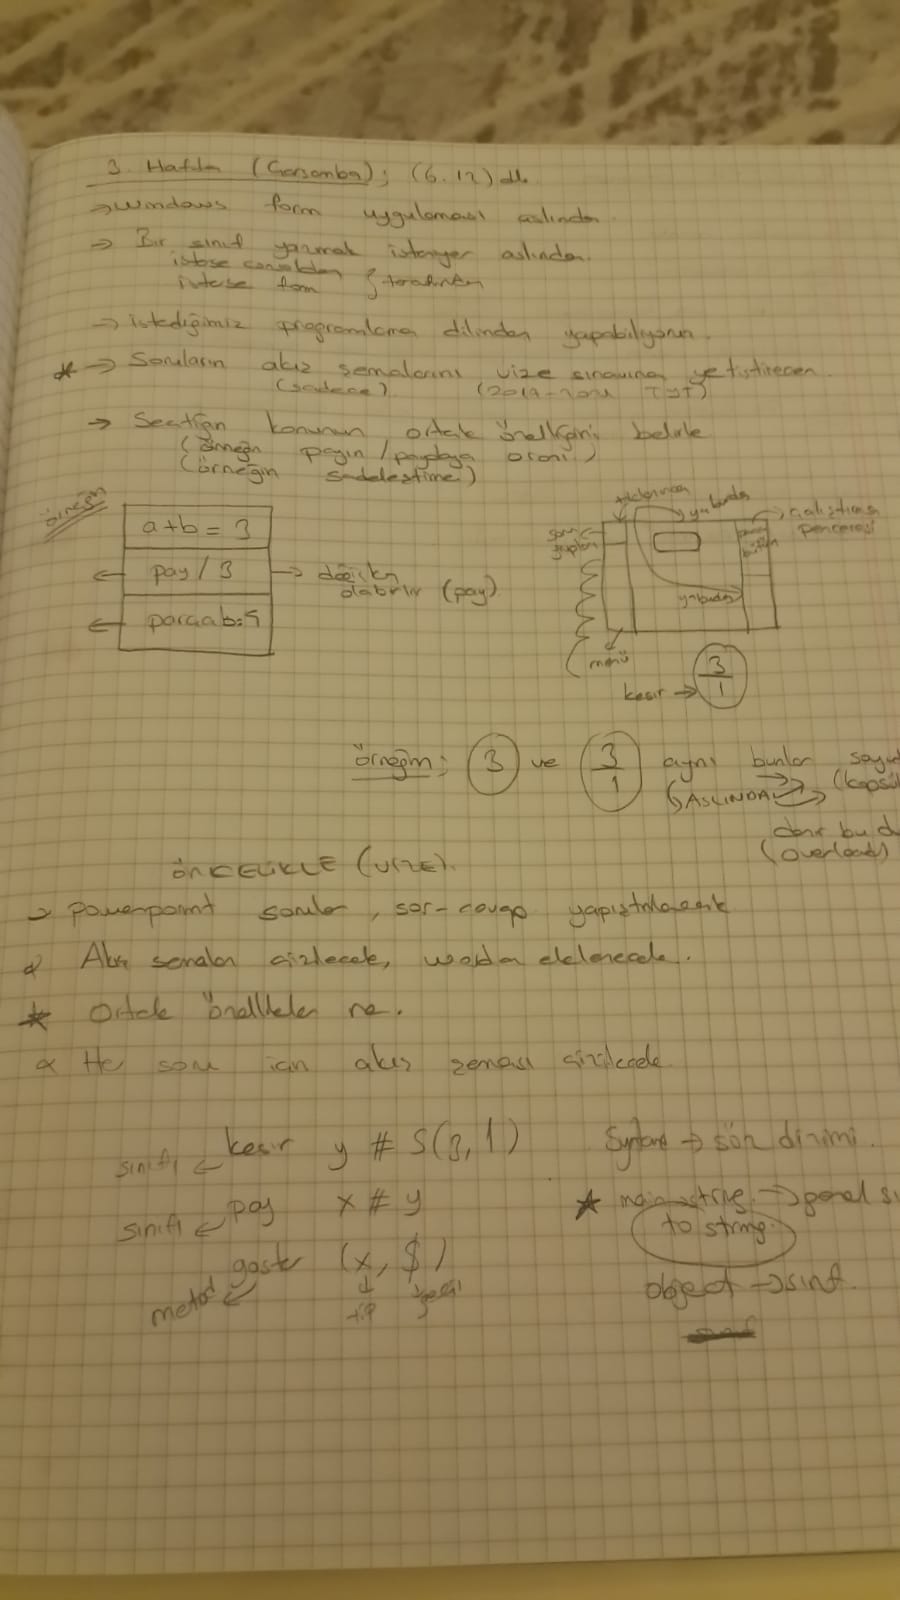 3. Hafta (Çarşamba); (6.12) dk.
→ Windows form uygulaması aslında
→ Bir sınıf yazmak isteniyor aslında.
istese consoldan
istese form } tarafından
→ istediğimiz programlama dilinden yapabiliyoruz.
* → Soruların akış şemalarını vize sınavına yetiştirecen.
(sadece) (2019- TYT)
→ Seçtiğin konunun ortak özelliğini belirle
(örneğin payın / paydaya oranı)
(örneğin sadeleştirme)
örneğin
a+b = 3
← pay / 3 → değişken olabilir (pay)
← parçab:5
tıklanınca ya burda çalıştırma penceresi
soru
ya burda
menü
kesir → 3/1
örneğin; 3 ve 3/1 aynı bunlar
(ASLINDA
denir bu
(overload)
ÖNCELİKLE (VİZE).
→ Powerpoint sorular, sor-cevap yapıştırılacak
α Akış şemaları çizilecek, worda eklenecek.
* Ortak özellikler ne.
α Her soru için akış şeması çizilecek
sınıfı ← kesir y # S(3,1)
Syntax → söz dizimi.
sınıfı ← pay x # y
* main string → genel
to string
metod ← goster (x, $)
↓ tip
object → sınıf.